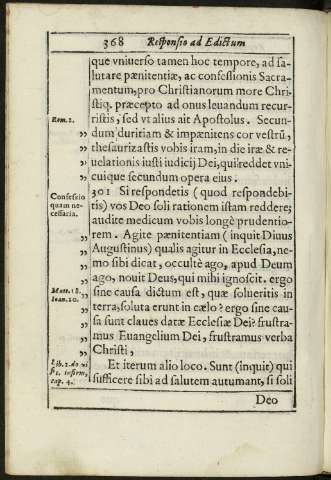 368 Responsio ad Edictum
que vniuerso tamen hoc tempore, ad sa-
lutare pænitentiæ, ac confessionis Sacra-
mentum, pro Christianorum more Chri-
stiq. præcepto ad onus leuandum recur-
Rom. 2.
ristis, sed vt alius ait Apostolus. Secun-
„ dum duritiam & impænitens cor vestrũ,
„ thesaurizastis vobis iram, in die iræ & re-
„ uelationis iusti iudicij Dei, qui reddet vni-
„ cuique secundum opera eius.
Confessio
quam ne-
cessaria.
301 Si respondetis (quod respondebi-
tis) vos Deo soli rationem istam reddere;
audite medicum vobis longè prudentio-
rem. Agite pænitentiam (inquit Diuus
„ Augustinus) qualis agitur in Ecclesia, ne-
„ mo sibi dicat, occultè ago, apud Deum
„ ago, nouit Deus, qui mihi ignoscit. ergo
Matt. 18.
Ioan. 20.
„ sine causa dictum est, quæ solueritis in
„ terra, soluta erunt in cælo? ergo sine cau-
„ sa sunt claues datæ Ecclesiæ Dei? frustra-
„ mus Euangelium Dei, frustramus verba
„ Christi,
Lib. 2. de vi
sit. infirm.
cap. 4.
Et iterum alio loco. Sunt (inquit) qui
„ sufficere sibi ad salutem autumant, si soli
Deo